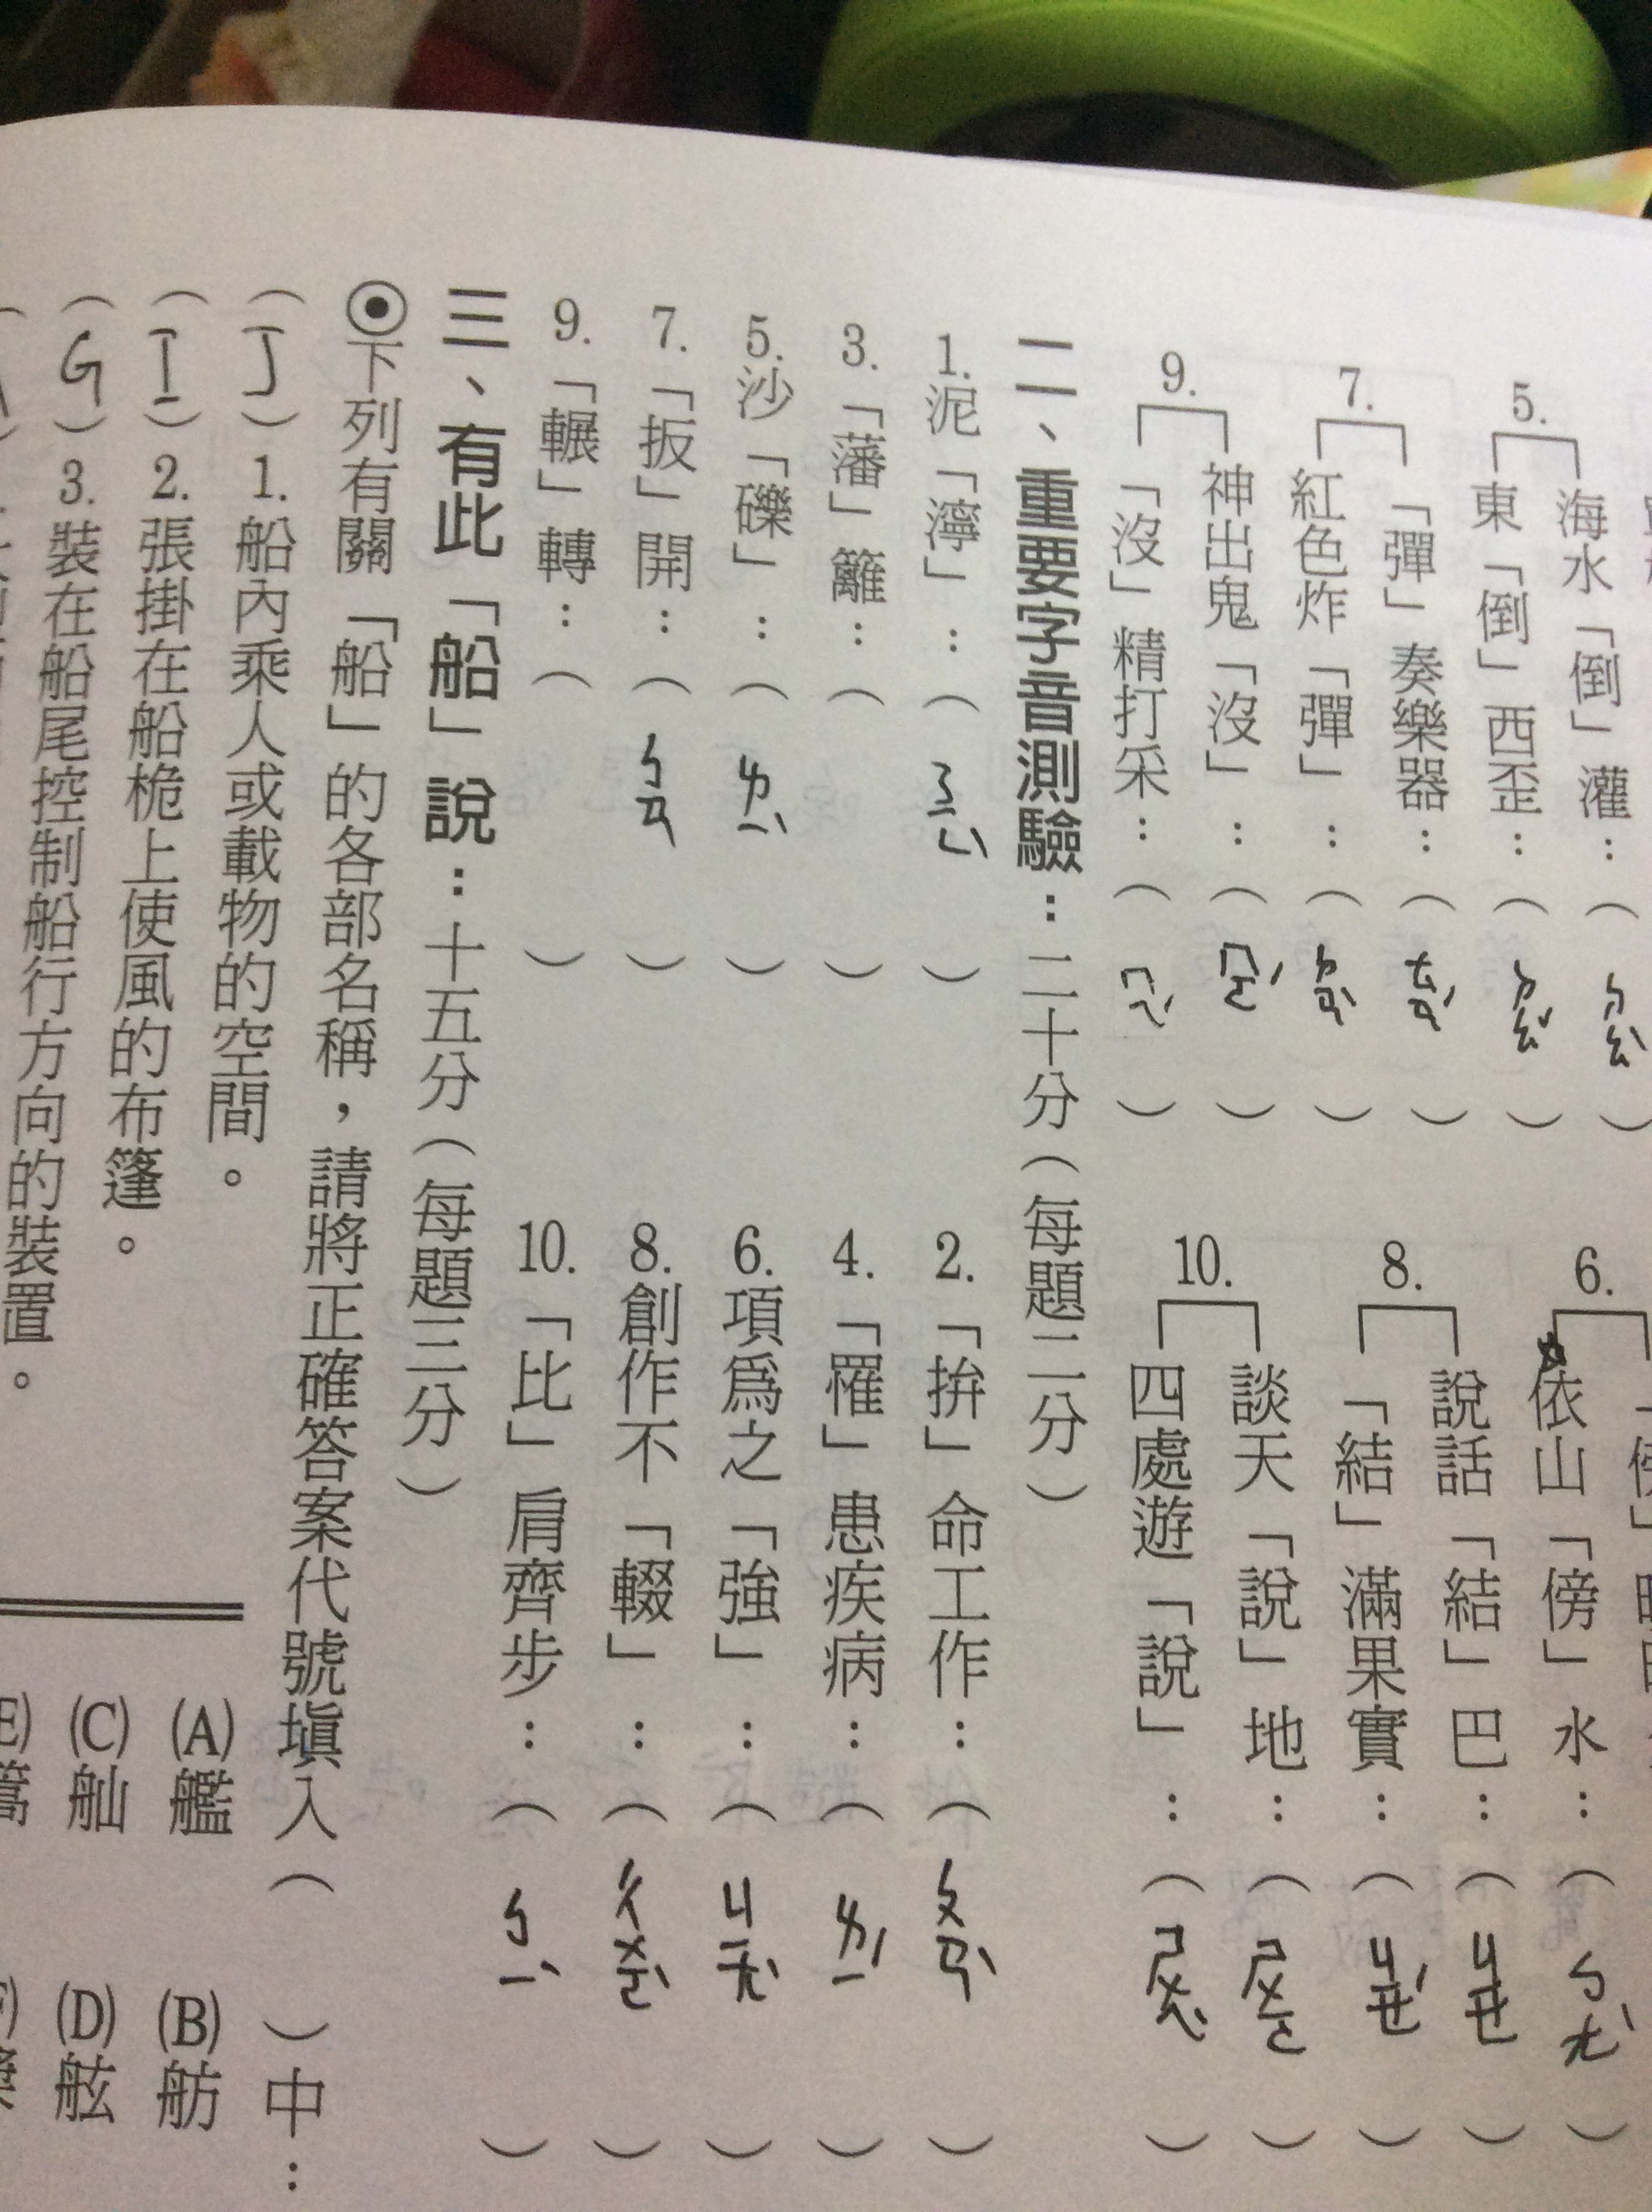 5.
海水「倒」灌：（ㄉㄠˋ）
東「倒」西歪：（ㄉㄠˇ）
7.
「彈」奏樂器：（ㄊㄢˊ）
紅色炸「彈」：（ㄉㄢˋ）
9.
神出鬼「沒」：（ㄇㄛˋ）
「沒」精打采：（ㄇㄟˊ）
6.
依山「傍」水：（ㄅㄤˋ）
8.
說話「結」巴：（ㄐㄧㄝ）
「結」滿果實：（ㄐㄧㄝˊ）
10.
談天「說」地：（ㄕㄨㄛ）
四處遊「說」：（ㄕㄨㄟˋ）
二、重要字音測驗：二十分（每題二分）
1.泥「濘」：（ㄋㄧㄥˋ）
2.「拚」命工作：（ㄆㄢˋ）
3.「藩」籬：（ ）
4.「罹」患疾病：（ㄌㄧˊ）
5.沙「礫」：（ㄌㄧˋ）
6.項為之「強」：（ㄐㄧㄤˋ）
7.「扳」開：（ㄅㄢ）
8.創作不「輟」：（ㄔㄨㄛˋ）
9.「輾」轉：（ ）
10.「比」肩齊步：（ㄅㄧˋ）
三、有此「船」說：十五分（每題三分）
⊙下列有關「船」的各部名稱，請將正確答案代號填入（ ）中：
（J）1.船內乘人或載物的空間。
（I）2.張掛在船桅上使風的布篷。
（G）3.裝在船尾控制船行方向的裝置。
(A)艦 (B)舫
(C)舢 (D)舷